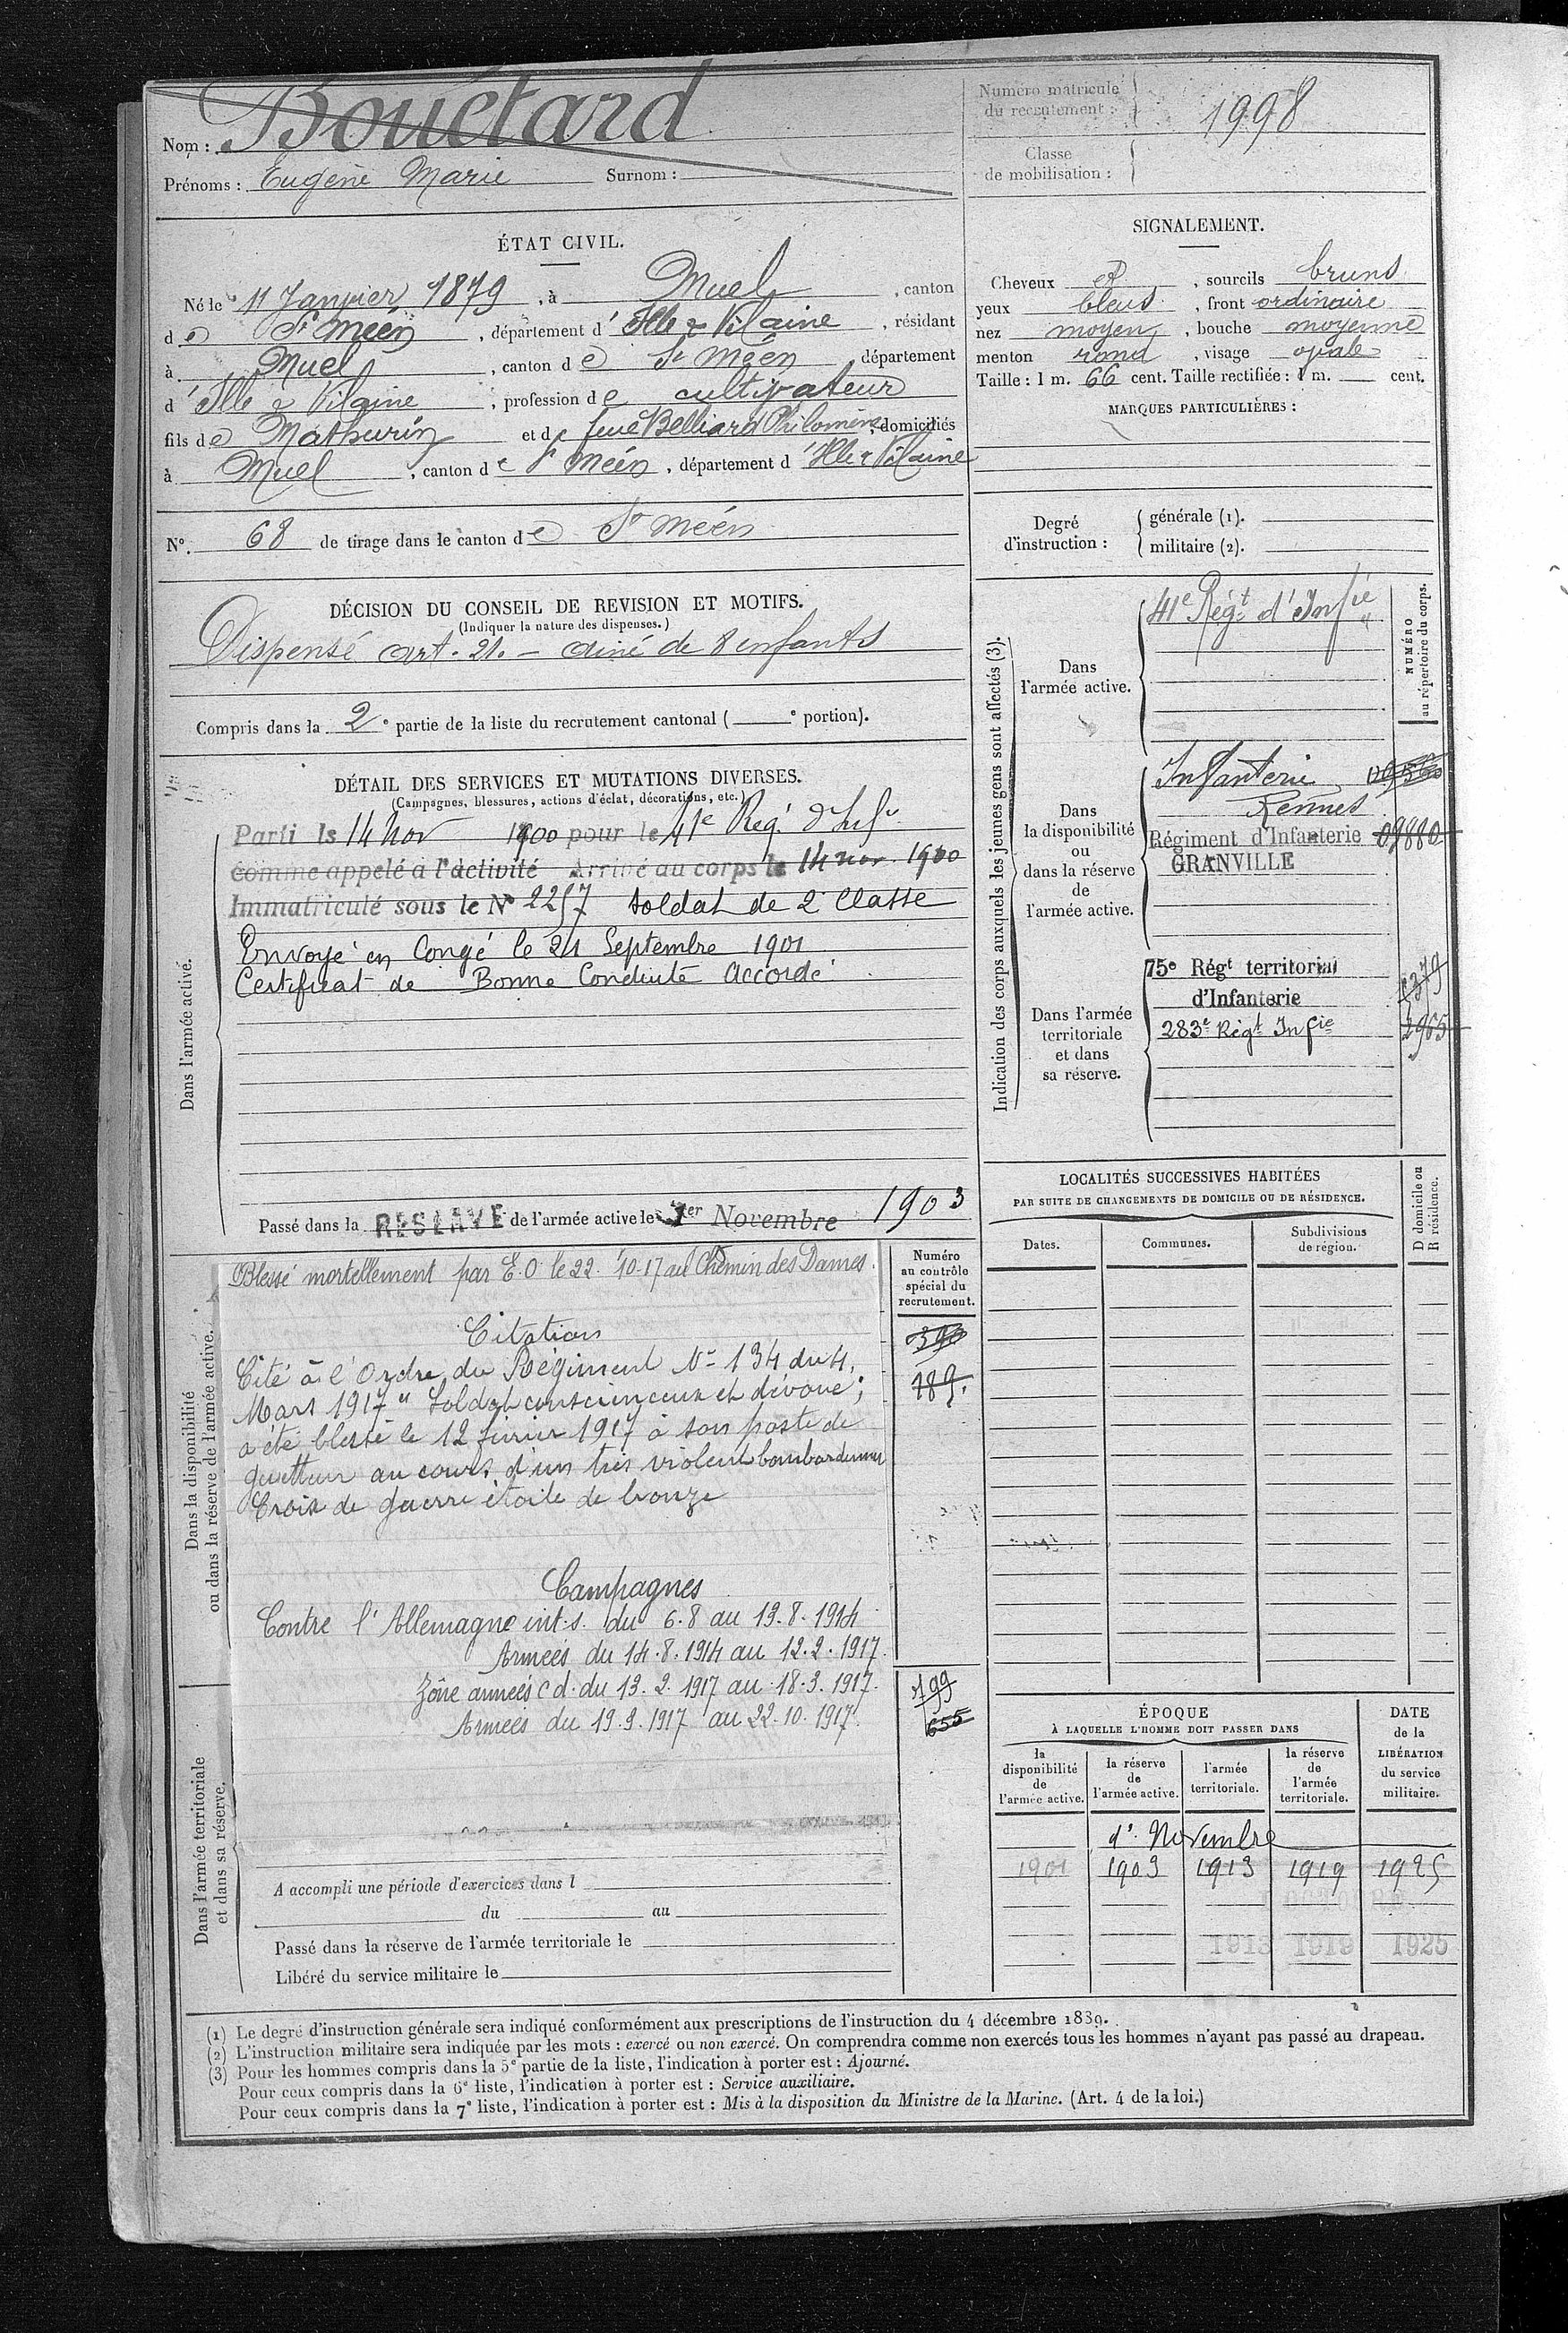 Nom : Bouétard
Prénoms : Eugène Marie Surnom :
Numéro matricule du recrutement : 1998
Classe de mobilisation :
ÉTAT CIVIL.
Né le 11 Janvier 1879, à Muel, canton
de St Méen, département d'Ille & Vilaine, résidant
à Muel, canton de St Méen département
d'Ille & Vilaine, profession de cultivateur
fils de Mathurin et de feue Belliard Philomène, domiciliés
à Muel, canton de St Méen, département d'Ille & Vilaine
N° 68 de tirage dans le canton de St Méen
SIGNALEMENT.
Cheveux et, sourcils bruns
yeux bleus, front ordinaire
nez moyen, bouche moyenne
menton rond, visage ovale
Taille : 1 m. 66 cent. Taille rectifiée : 1 m. cent.
MARQUES PARTICULIÈRES :
Degré d'instruction : générale (1).
militaire (2).
DÉCISION DU CONSEIL DE REVISION ET MOTIFS.
(Indiquer la nature des dispenses.)
Dispensé art. 21. - ainé de 8 enfants
Compris dans la 2e partie de la liste du recrutement cantonal ( e portion).
DÉTAIL DES SERVICES ET MUTATIONS DIVERSES.
(Campagnes, blessures, actions d'éclat, décorations, etc.)
Dans l'armée active.
Parti le 14 Nov 1900 pour le 41e Reg. d'Infie
comme appelé à l'activité Arrivé au corps le 14 nov. 1900
Immatriculé sous le N° 2257 soldat de 2e Classe
Envoyé en Congé le 21 Septembre 1901
Certificat de Bonne Conduite Accordé
Passé dans la RÉSERVE de l'armée active le 1er Novembre 1903
Indication des corps auxquels les jeunes gens sont affectés (3).
NUMÉRO au répertoire du corps.
Dans l'armée active.
41e Régt d'Infie
Dans la disponibilité ou dans la réserve de l'armée active.
Infanterie
Rennes
Régiment d'Infanterie 09880
GRANVILLE
Dans l'armée territoriale et dans sa réserve.
75e Régt territorial
d'Infanterie
283e Régt Infie 2965
LOCALITÉS SUCCESSIVES HABITÉES
PAR SUITE DE CHANGEMENTS DE DOMICILE OU DE RÉSIDENCE.
Dates.
Communes.
Subdivisions de région.
D domicile ou R résidence.
Dans la disponibilité ou dans la réserve de l'armée active.
Numéro au contrôle spécial du recrutement.
390
189.
Blessé mortellement par E.O. le 22.10.17 au Chemin des Dames.
Citation
Cité à l'Ordre du Régiment N° 134 du 4
Mars 1917 " Soldat consciencieux et dévoué ;
a été blessé le 12 février 1917 à son poste de
guetteur au cours d'un très violent bombardement
Croix de guerre étoile de bronze
Campagnes
Contre l'Allemagne int.s. du 6.8 au 13.8.1914
Armées du 14.8.1914 au 12.2.1917.
Zône armées c d. du 13.2.1917 au 18.3.1917.
Armées du 19.3.1917 au 22.10.1917.
799
655
Dans l'armée territoriale et dans sa réserve.
A accompli une période d'exercices dans l
du au
Passé dans la réserve de l'armée territoriale le
Libéré du service militaire le
ÉPOQUE
À LAQUELLE L'HOMME DOIT PASSER DANS
la disponibilité de l'armée active.
la réserve de l'armée active.
l'armée territoriale.
la réserve de l'armée territoriale.
DATE de la LIBÉRATION du service militaire.
1er Novembre
1901 1903 1913 1919 1925
1913 1919 1925
(1) Le degré d'instruction générale sera indiqué conformément aux prescriptions de l'instruction du 4 décembre 1889.
(2) L'instruction militaire sera indiquée par les mots : exercé ou non exercé. On comprendra comme non exercés tous les hommes n'ayant pas passé au drapeau.
(3) Pour les hommes compris dans la 5e partie de la liste, l'indication à porter est : Ajourné.
Pour ceux compris dans la 6e liste, l'indication à porter est : Service auxiliaire.
Pour ceux compris dans la 7e liste, l'indication à porter est : Mis à la disposition du Ministre de la Marine. (Art. 4 de la loi.)